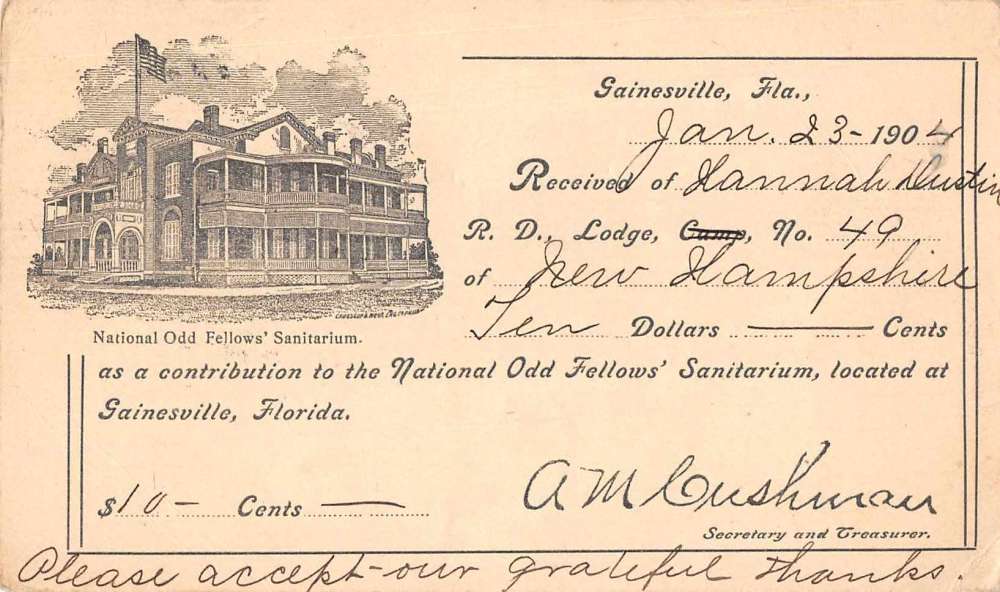 Gainesville, Fla.,
Jan. 23- 1904
Received of Hannah Dustin
R. D., Lodge, Camp, No. 49
of New Hampshire
Ten Dollars — Cents
National Odd Fellows' Sanitarium.
as a contribution to the National Odd Fellows' Sanitarium, located at
Gainesville, Florida.
$10 — Cents —
A M Cushman
Secretary and Treasurer.
Please accept our grateful thanks.